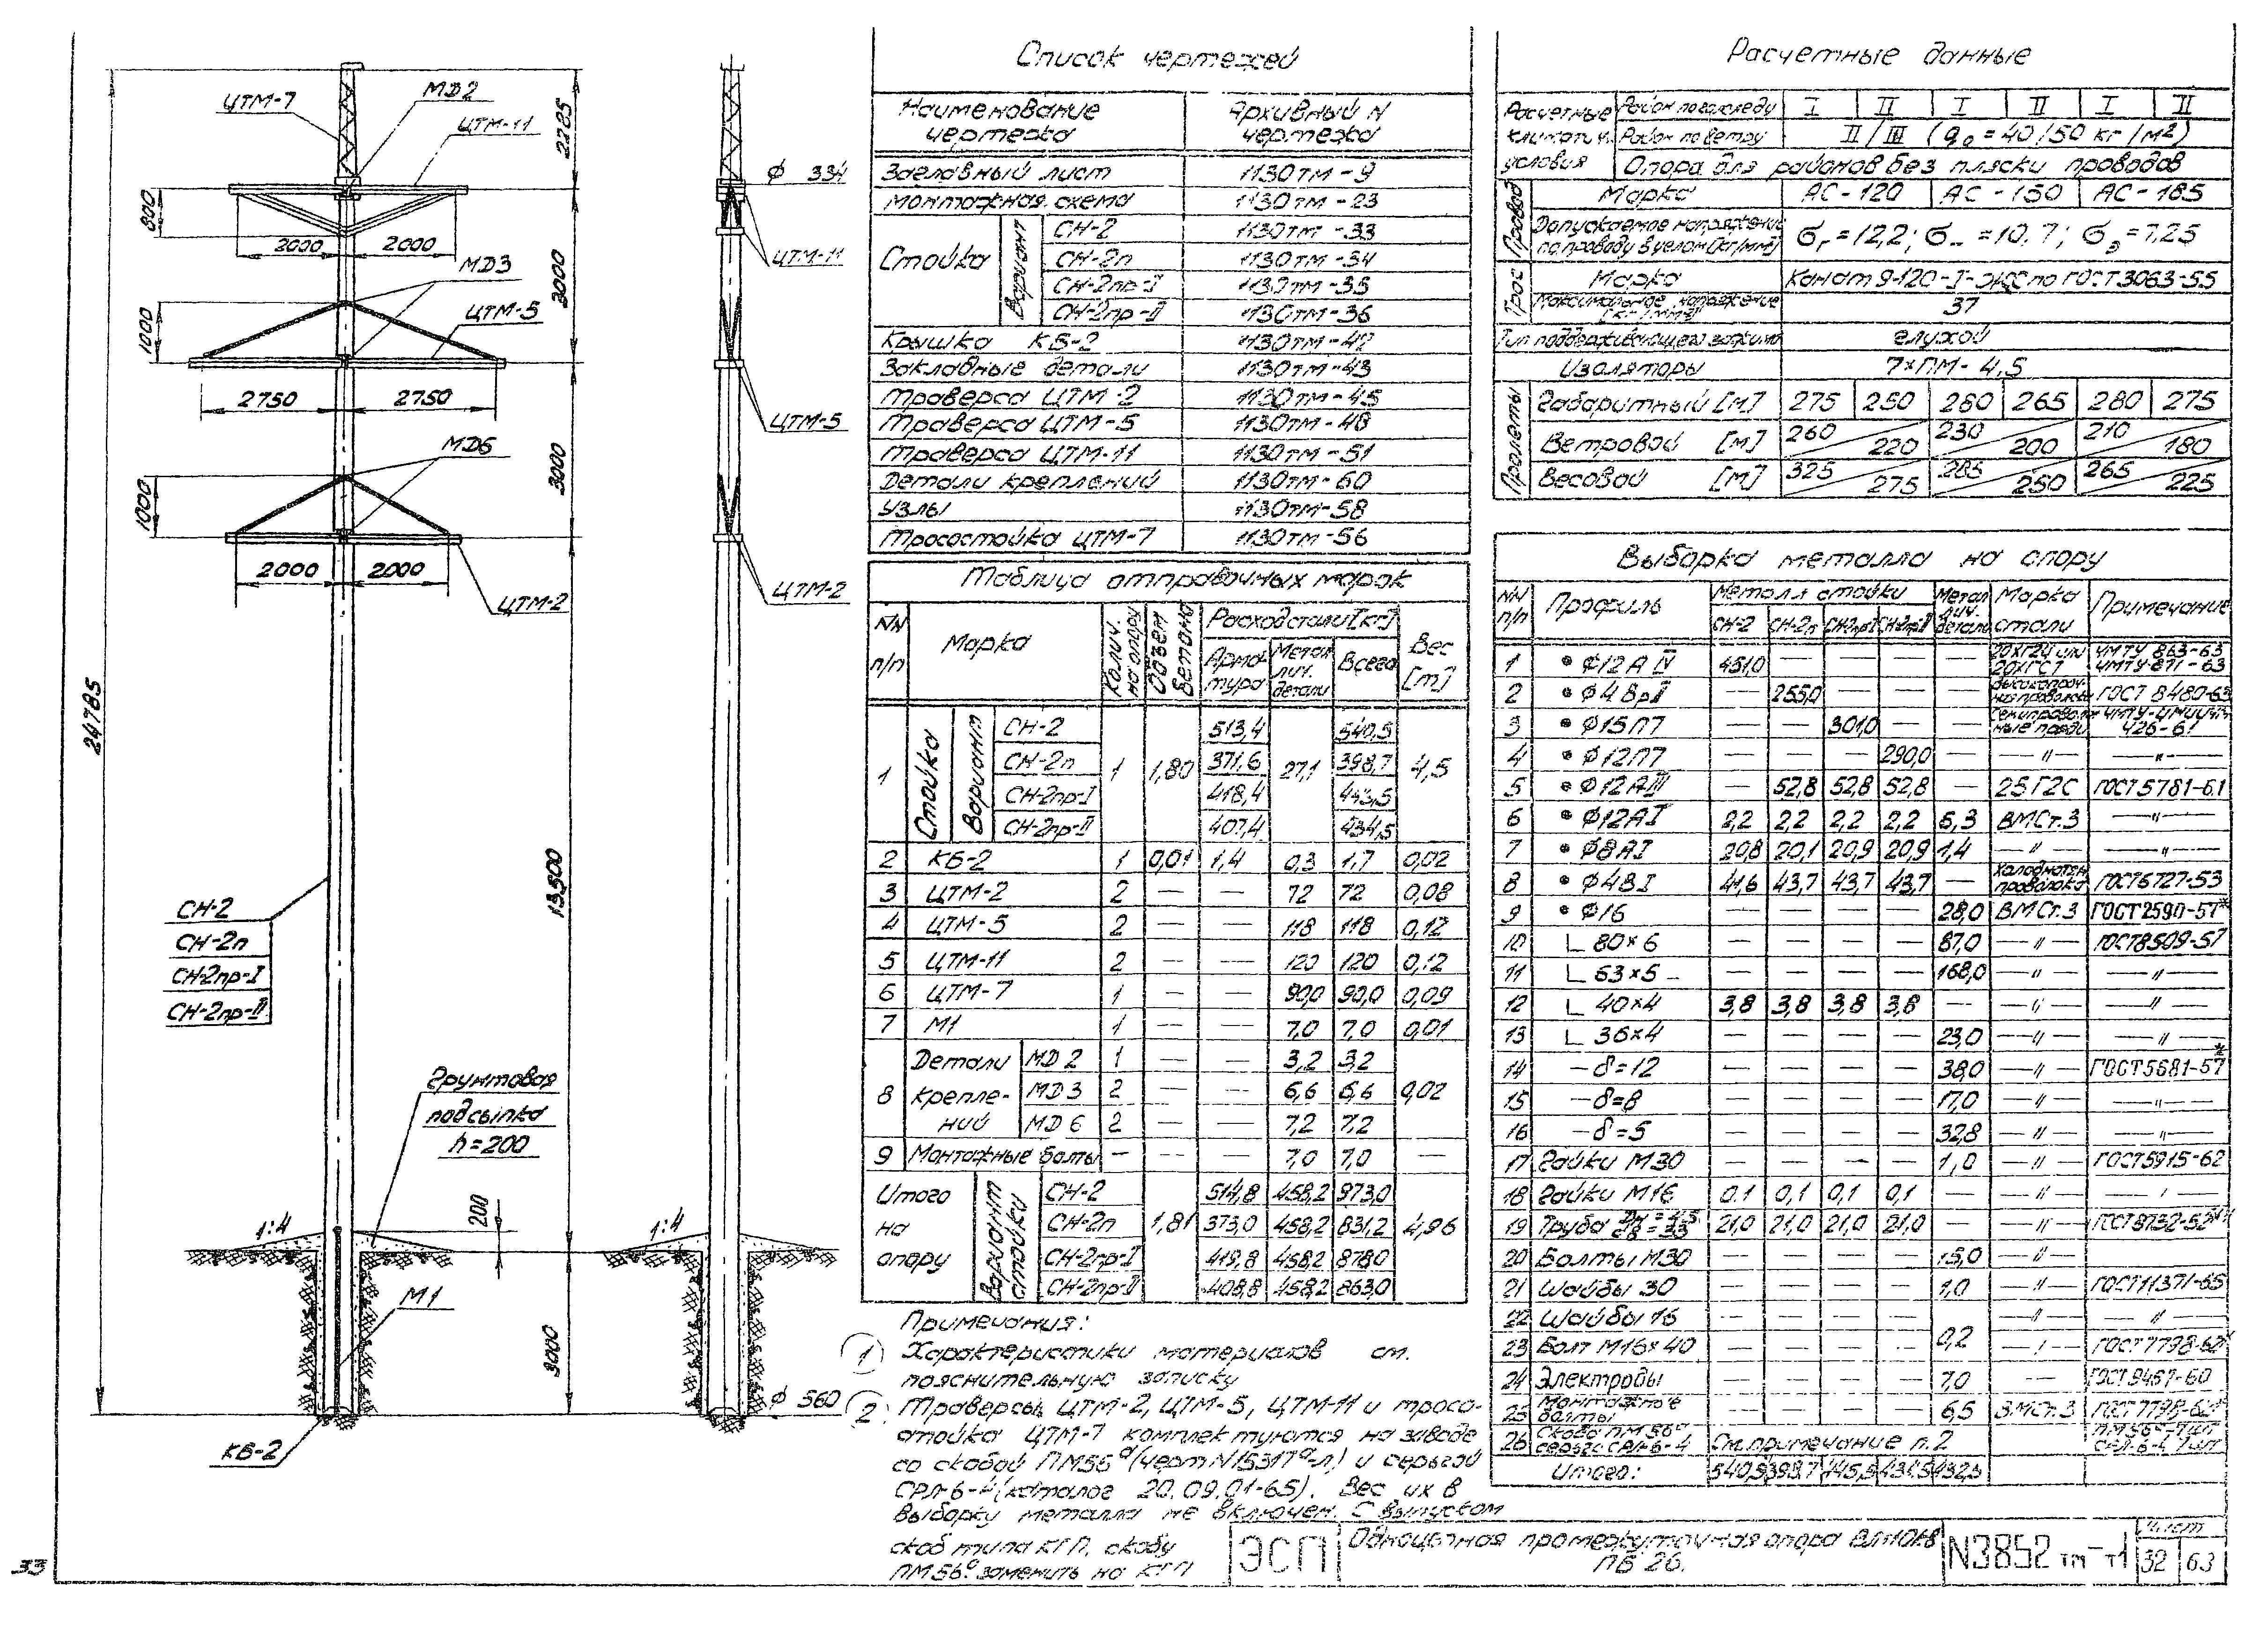 ЦТМ-7
МД2
ЦТМ-11
2285
800
2000 2000
МД3
ЦТМ-5
3000
1000
2750 2750
МД6
3000
1000
2000 2000
ЦТМ-2
24785
13500
СН-2
СН-2п
СН-2пр-I
СН-2пр-II
Грунтовая
подсыпка
h=200
200
1:4
1:4
М1
3000
КБ-2
ϕ 334
ЦТМ-11
ЦТМ-5
ЦТМ-2
ϕ 560
33
Список чертежей
Наименование чертежа Архивный N чертежа
Заглавный лист 1130тм-9
Монтажная схема 1130тм-23
Стойка Вариант СН-2 1130тм-33
СН-2п 1130тм-34
СН-2пр-I 1130тм-35
СН-2пр-II 1130тм-36
Крышка КБ-2 1130тм-42
Закладные детали 1130тм-43
Траверса ЦТМ-2 1130тм-45
Траверса ЦТМ-5 1130тм-48
Траверса ЦТМ-11 1130тм-51
Детали креплений 1130тм-60
Узлы 1130тм-58
Тросостойка ЦТМ-7 1130тм-56
Таблица отправочных марок
NN п/п Марка Колич. на опору Объем бетона Расход стали [кг] Вес [т]
Арматура Метал лич. детали Всего
1 Стойка Вариант СН-2 1 1,80 513,4 27,1 540,5 4,5
СН-2п 371,6 398,7
СН-2пр-I 418,4 445,5
СН-2пр-II 407,4 434,5
2 КБ-2 1 0,01 1,4 0,3 1,7 0,02
3 ЦТМ-2 2 — — 72 72 0,08
4 ЦТМ-5 2 — — 118 118 0,12
5 ЦТМ-11 2 — — 120 120 0,12
6 ЦТМ-7 1 — — 90,0 90,0 0,09
7 М1 1 — — 7,0 7,0 0,01
8 Детали крепле- ний МД 2 1 — — 3,2 3,2 0,02
МД 3 2 — — 6,6 6,6
МД 6 2 — — 7,2 7,2
9 Монтажные болты — — — 7,0 7,0 —
Итого на опору Вариант стойки СН-2 1,81 514,8 458,2 973,0 4,96
СН-2п 373,0 458,2 831,2
СН-2пр-I 419,8 458,2 878,0
СН-2пр-II 408,8 458,2 863,0
Примечания:
1 Характеристики материалов см.
пояснительную записку
2. Траверсы ЦТМ-2, ЦТМ-5, ЦТМ-11 и тросо-
стойка ЦТМ-7 комплектуются на заводе
со скобой ПМ56а (черт N15317а-л) и серьгой
СРЛ-6-4 (каталог 20.09.01-65). Вес их в
выборку металла не включен. С выпуском
скоб типа КГП, скобу
ПМ56а заменить на КГП
Расчетные данные
Расчетные климатич. условия Район по гололеду I II I II I II
Район по ветру II/III (q₀=40/50 кг/м²)
Опора для районов без пляски проводов
Провод Марка АС-120 АС-150 АС-185
Допускаемое напряжение по проводу в целом [кг/мм²] σг=12,2; σ-=10,7; σэ=7,25
Трос Марка Канат 9-120-I- по ГОСТ 3063-55
Максимальное напряжение [кг/мм²] 37
Тип поддерживающего зажима глухой
Изоляторы 7×ПМ-4,5
Пролеты Габаритный [м] 275 250 280 265 280 275
Ветровой [м] 260/220 230/200 210/180
Весовой [м] 325/275 285/250 265/225
Выборка металла на опору
NN п/п Профиль Металл стойки Метал лич. детали Марка стали Примечание
СН-2 СН-2п СН-2пр-I СН-2пр-II
1 • ϕ12А IV 451,0 — — — — 20ХГ2Ц или 20ХГСТ ЧМТУ 863-63 ЧМТУ-871-63
2 • ϕ4ВрII — 255,0 — — — Высокопроч- ная проволока ГОСТ 8480-63
3 • ϕ15П7 — — 301,0 — — Семипроволоч- ные пряди 426-61
4 • ϕ12П7 — — — 290,0 — —"— —"—
5 • ϕ12АIII — 52,8 52,8 52,8 — 25Г2С ГОСТ 5781-61
6 • ϕ12АI 2,2 2,2 2,2 2,2 6,3 ВМСт.3 —"—
7 • ϕ8АI 20,8 20,1 20,9 20,9 1,4 —"— —"—
8 • ϕ4ВI 41,6 43,7 43,7 43,7 — Холоднотян. проволока ГОСТ 6727-53
9 • ϕ16 — — — — 28,0 ВМСт.3 ГОСТ 2590-57*
10 L 80×6 — — — — 87,0 —"— ГОСТ 8509-57
11 L 63×5 — — — — 168,0 —"— —"—
12 L 40×4 3,8 3,8 3,8 3,8 — —"— —"—
13 L 36×4 — — — — 23,0 —"— —"—
14 —δ=12 — — — — 38,0 —"— ГОСТ 5681-57*
15 —δ=8 — — — — 17,0 —"— —"—
16 —δ=5 — — — — 32,8 —"— —"—
17 Гайки М30 — — — — 1,0 —"— ГОСТ 5915-62
18 Гайки М16 0,1 0,1 0,1 0,1 — —"— —"—
19 Труба 21,0 21,0 21,0 21,0 — —"— ГОСТ 8732-52
20 Болты М30 — — — — 15,0 —"—
21 Шайбы 30 — — — — 1,0 —"— ГОСТ 11371-65
22 Шайбы 16 — — — — —"— —"—
23 Болт М16×40 — — — — 0,2 —"— ГОСТ 7798-62*
24 Электроды — — — — 7,0 — ГОСТ 9467-60
25 Монтажные болты — — — — 6,5 ВМСт.3 ГОСТ 7798-62*
26 Скоба ПМ 56а серьга СРЛ-6-4 См. примечание п.2 ПМ56а-7шт СРЛ-6-4 7шт
Итого: 540,5 398,7 445,5 434,5 432,3
ЭСП
Одноцепная промежуточная опора ВЛ 110кВ
ПБ 26.
N3852тм-т1
Лист
32 63